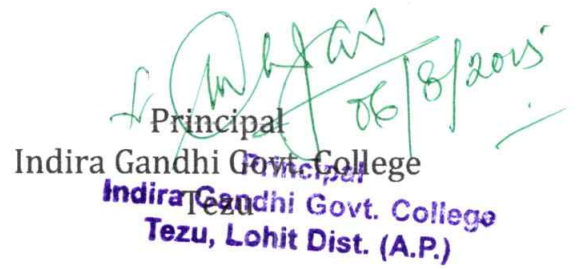 06/8/2015
Principal
Indira Gandhi Govt. College
Tezu
Principal
Indira Gandhi Govt. College
Tezu, Lohit Dist. (A.P.)